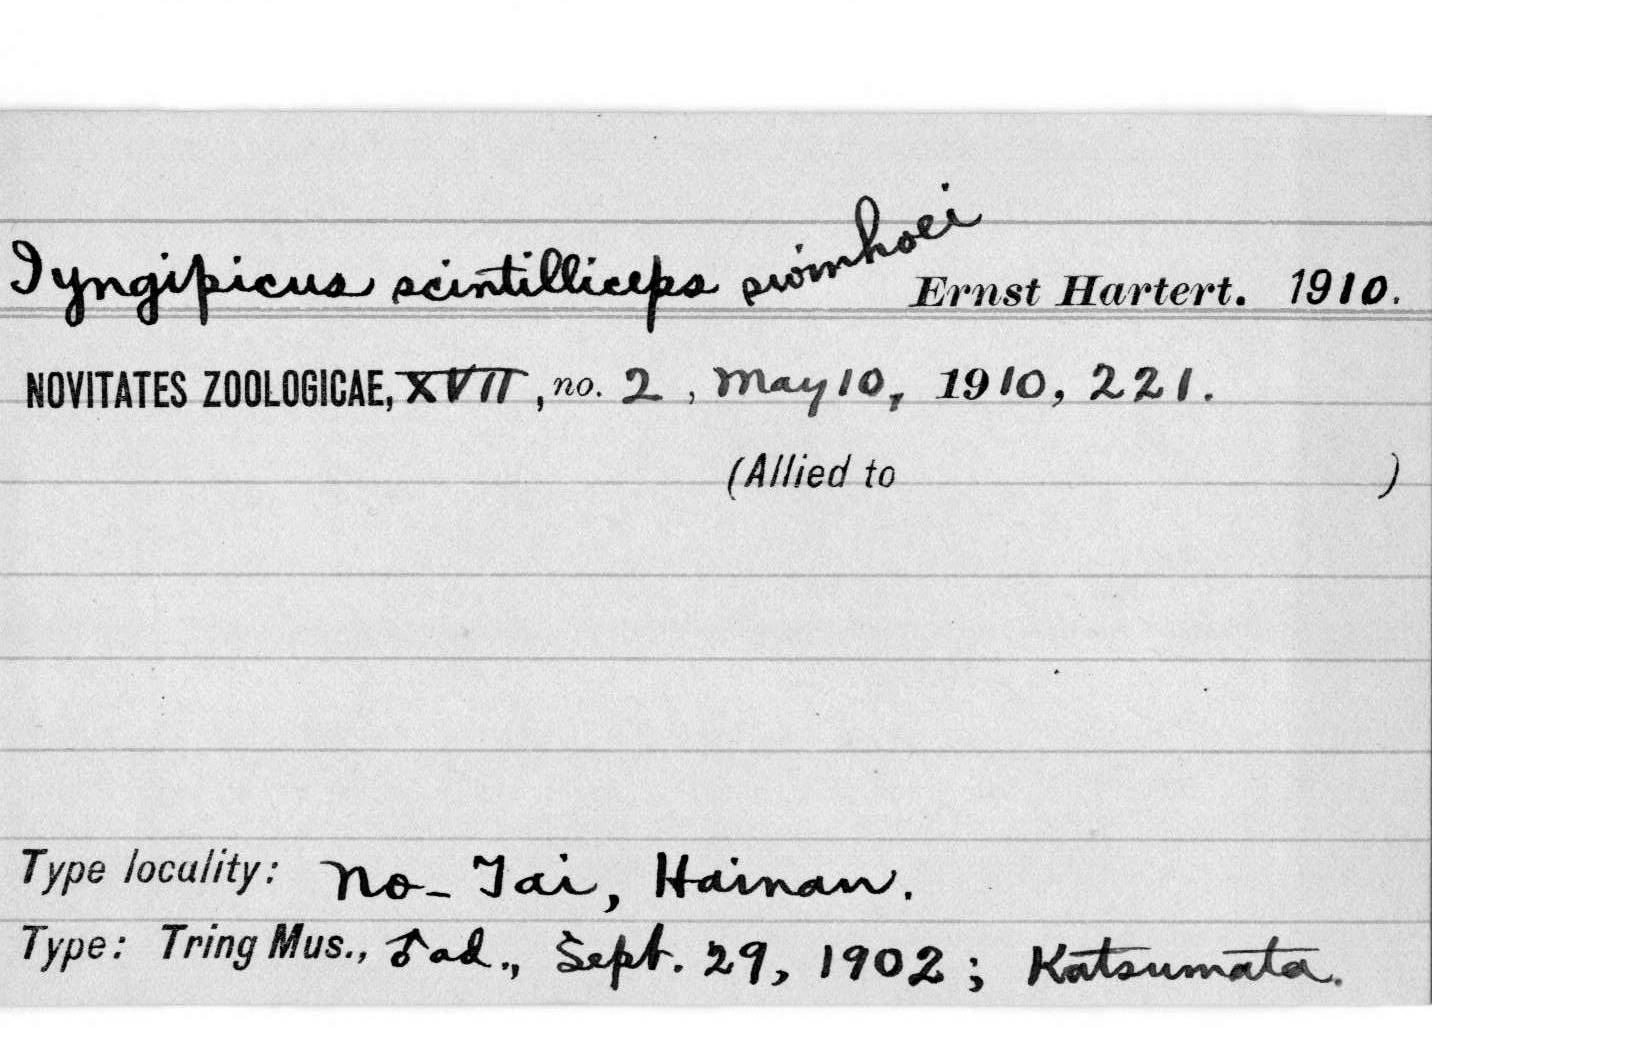 Iyngipicus scintilliceps swinhoei Ernst Hartert. 1910.
NOVITATES ZOOLOGICAE, XVII, no. 2, May 10, 1910, 221.
(Allied to )
Type locality: No-Tai, Hainan.
Type: Tring Mus., ♂ ad., Sept. 29, 1902; Katsumata.